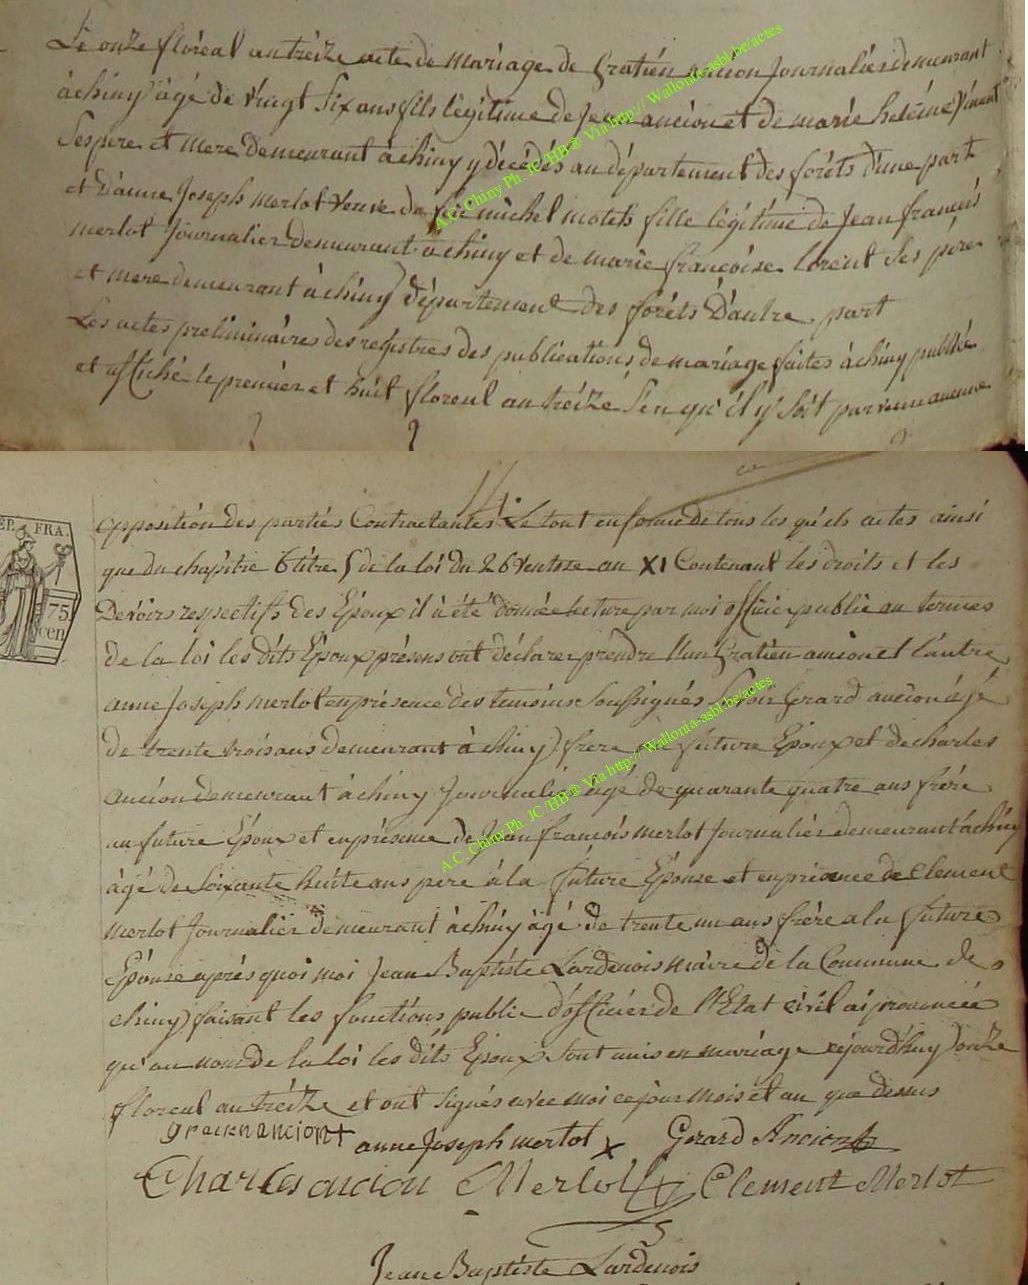 Le onze floréal an treize acte de mariage de Gratien ancion journalier demeurant
à chiny âgé de vingt six ans fils légitime de Jean ancion et de marie heléine
Ses pere et mere demeurant à chiny y décédés au département des foréts d'une part
et D'anne Joseph merlot veuve de feu michel fille légitime de Jean francois
merlot Journalier demeurant à chiny et de marie françoise lorent Ses père
et mere demeurant à chiny département des foréts D'autre part
Les actes preliminaires des registres des publications de mariage faites à chiny publié
et affiché le premier et huit floreal an treize S'en qu'il y Soit parvenu aucune
14.
opposition des partiés Contractantes Le tout en forme de tous les quels actes ainsi
que du chapitre 6 titre 5 de la loi du 26 ventose an XI Contenant les droits et les
Devoirs respectifs des Epoux il à été donnée lecture par moi officier public au termes
de la loi les dits Epoux présens ont déclaré prendre l'un Gratien ancion et l'autre
anne Joseph merlot en présence des temoins Soussignés Savoir Gerard ancion âjé
de trente trois ans demeurant à chiny frere au future Epoux et de charles
ancion demeurant à chiny Journalié âgé de quarante quatre ans frére
au future Epoux et en présence de Jean françois merlot Journalier demeurant à chiny
âgé de Soixante huite ans pere à la future Epouse et en présence de Clement
merlot Journalier demeurant à chiny âgé de trente un ans frére a la future
Epouse aprés quoi moi Jean Baptiste Lardenois maire de la Commune de
chiny faisant les fonctions public d'officier de l'Etat civil ai prononcée
qu'au nom de la loi les dits Epoux Sont unis en mariage cejourd'huy onze
floreal an treize et ont Signés avec moi ce jour mois et an que dessus
anne Joseph merlot x Gerard Ancion
Charles ancion Merlot Clement Merlot
Jean Baptiste Lardenois
REP. FRA.
75
cen
A.C. Chiny Ph. JC/HB® Via http:// Wallonia-asbl.be/actes
A.C. Chiny Ph. JC/HB® Via http:// Wallonia-asbl.be/actes